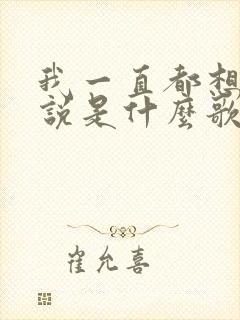 我一直都想
說是什麼歌
崔允喜